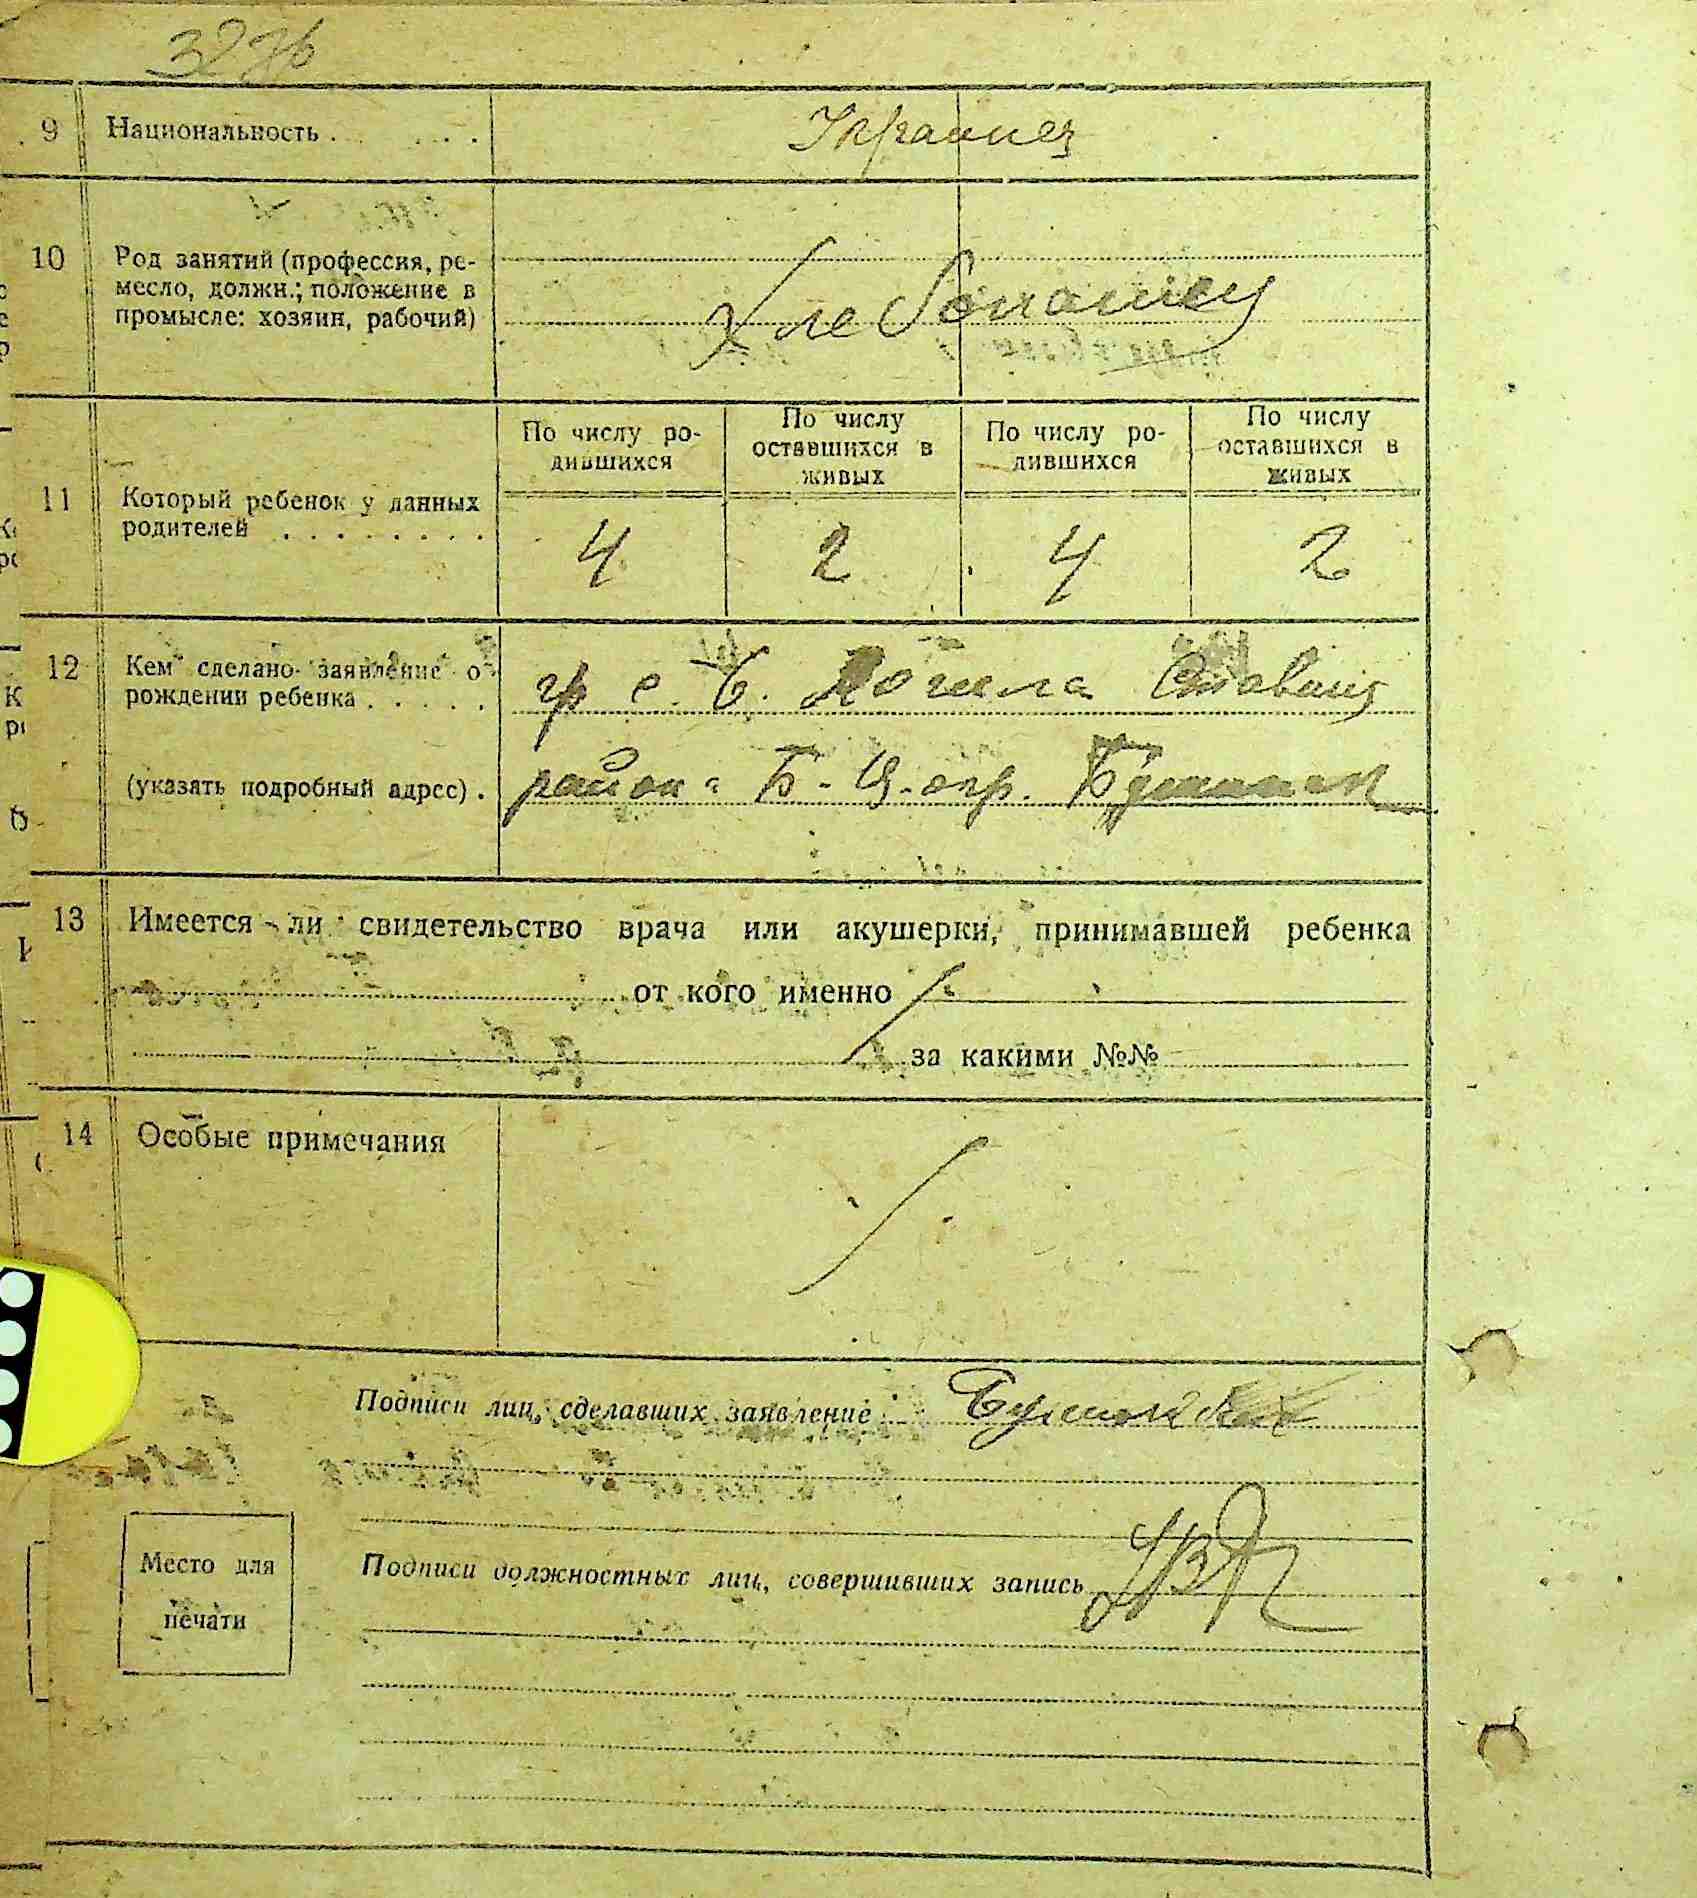 9 Национальность . . . . . Украинец
10 Род занятий (профессия, ре-
месло, должн.; положение в
промысле: хозяин, рабочий)
Хлебопашец
По числу ро-
дившихся
По числу
оставшихся в
живых
По числу ро-
дившихся
По числу
оставшихся в
живых
11 Который ребенок у данных
родителей . . . . . . . .
4 2 4 2
12 Кем сделано заявление о
рождении ребенка . . . . .
гр с. Б. Могила Ставищ
(указать подробный адрес) .
района Б-Ц. окр.
13 Имеется ли свидетельство врача или акушерки, принимавшей ребенка
от кого именно
за какими №№
14 Особые примечания
Подписи лиц, сделавших заявление:
Подписи должностных лиц, совершивших запись
Место для
печати